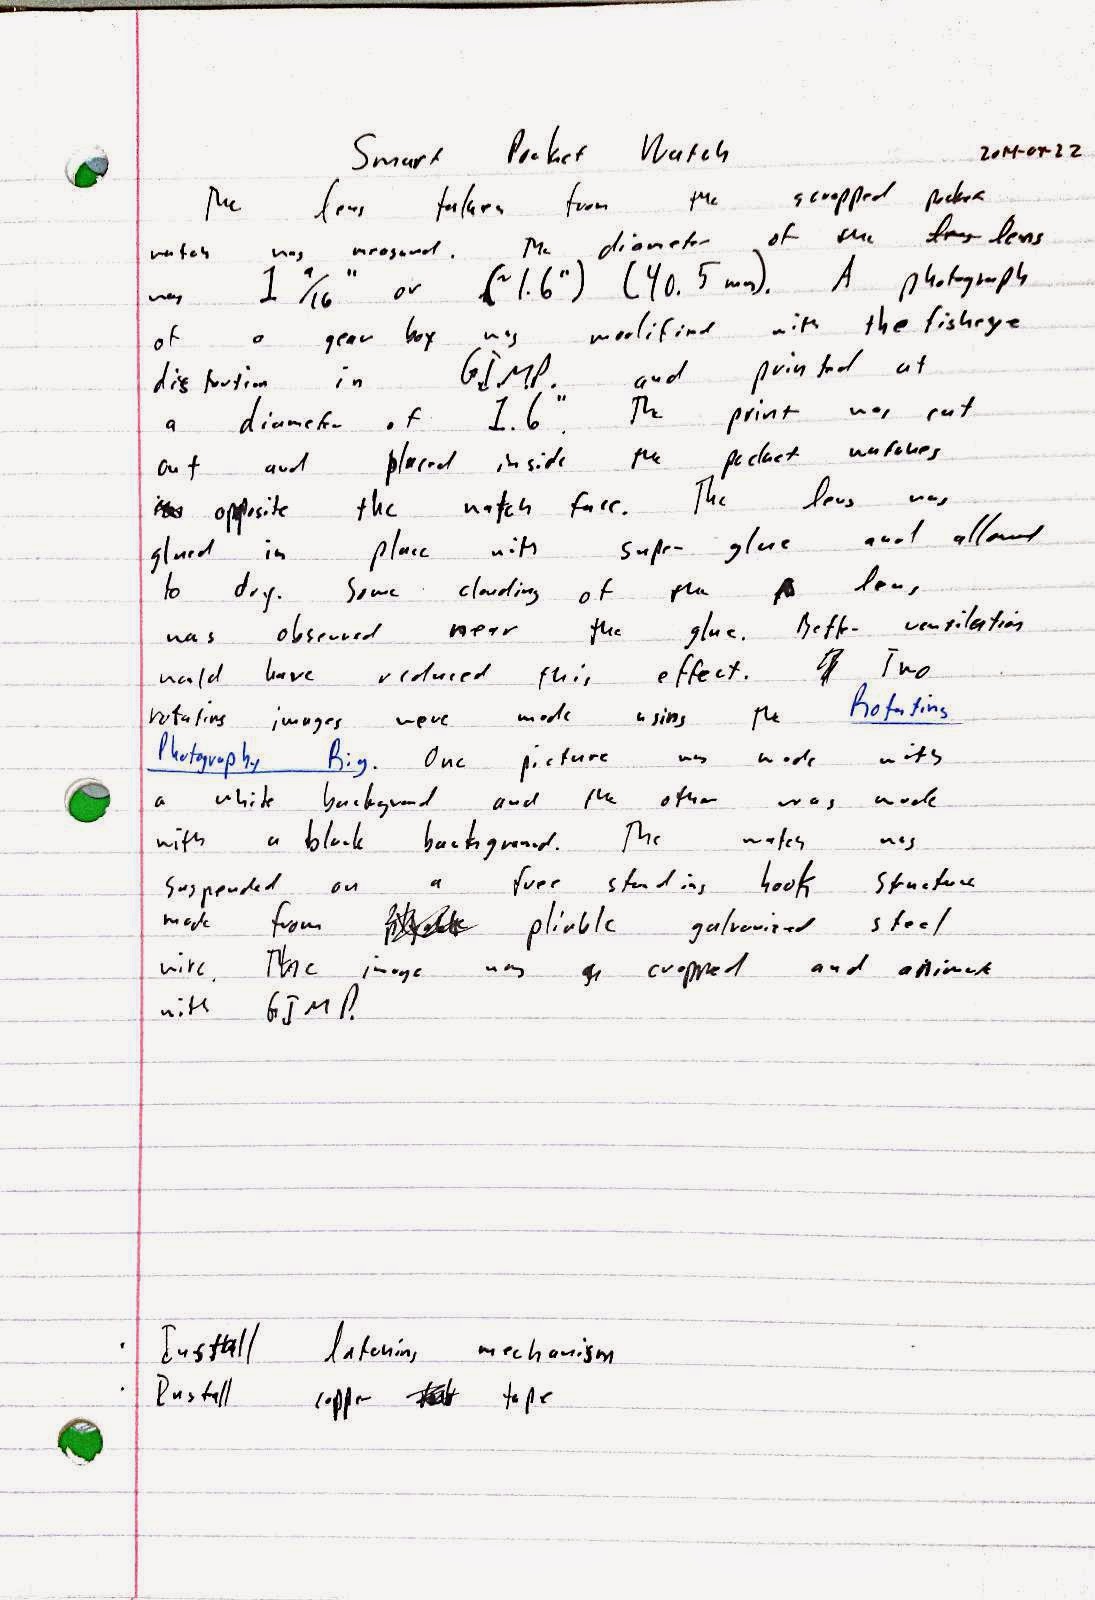 Smart Pocket Watch 2014-04-22
The lens taken from the scrapped pocket
watch was measured. The diameter of the lens lens
was 1 9/16" or (~1.6") (40.5 mm). A photograph
of a gear box was modified with the fisheye
distortion in GIMP. and printed at
a diameter of 1.6". The print was cut
out and placed inside the pocket watches
opposite the watch face. The lens was
glued in place with super glue and allowed
to dry. Some clouding of the lens
was observed near the glue. Better ventilation
would have reduced this effect. Two
rotating images were made using the Rotating
Photography Rig. One picture was made with
a white background and the other was made
with a black background. The watch was
suspended on a free standing hook structure
made from pliable galvanized steel
wire. The image was cropped and animate
with GIMP.
· Install latching mechanism
· Install copper tape